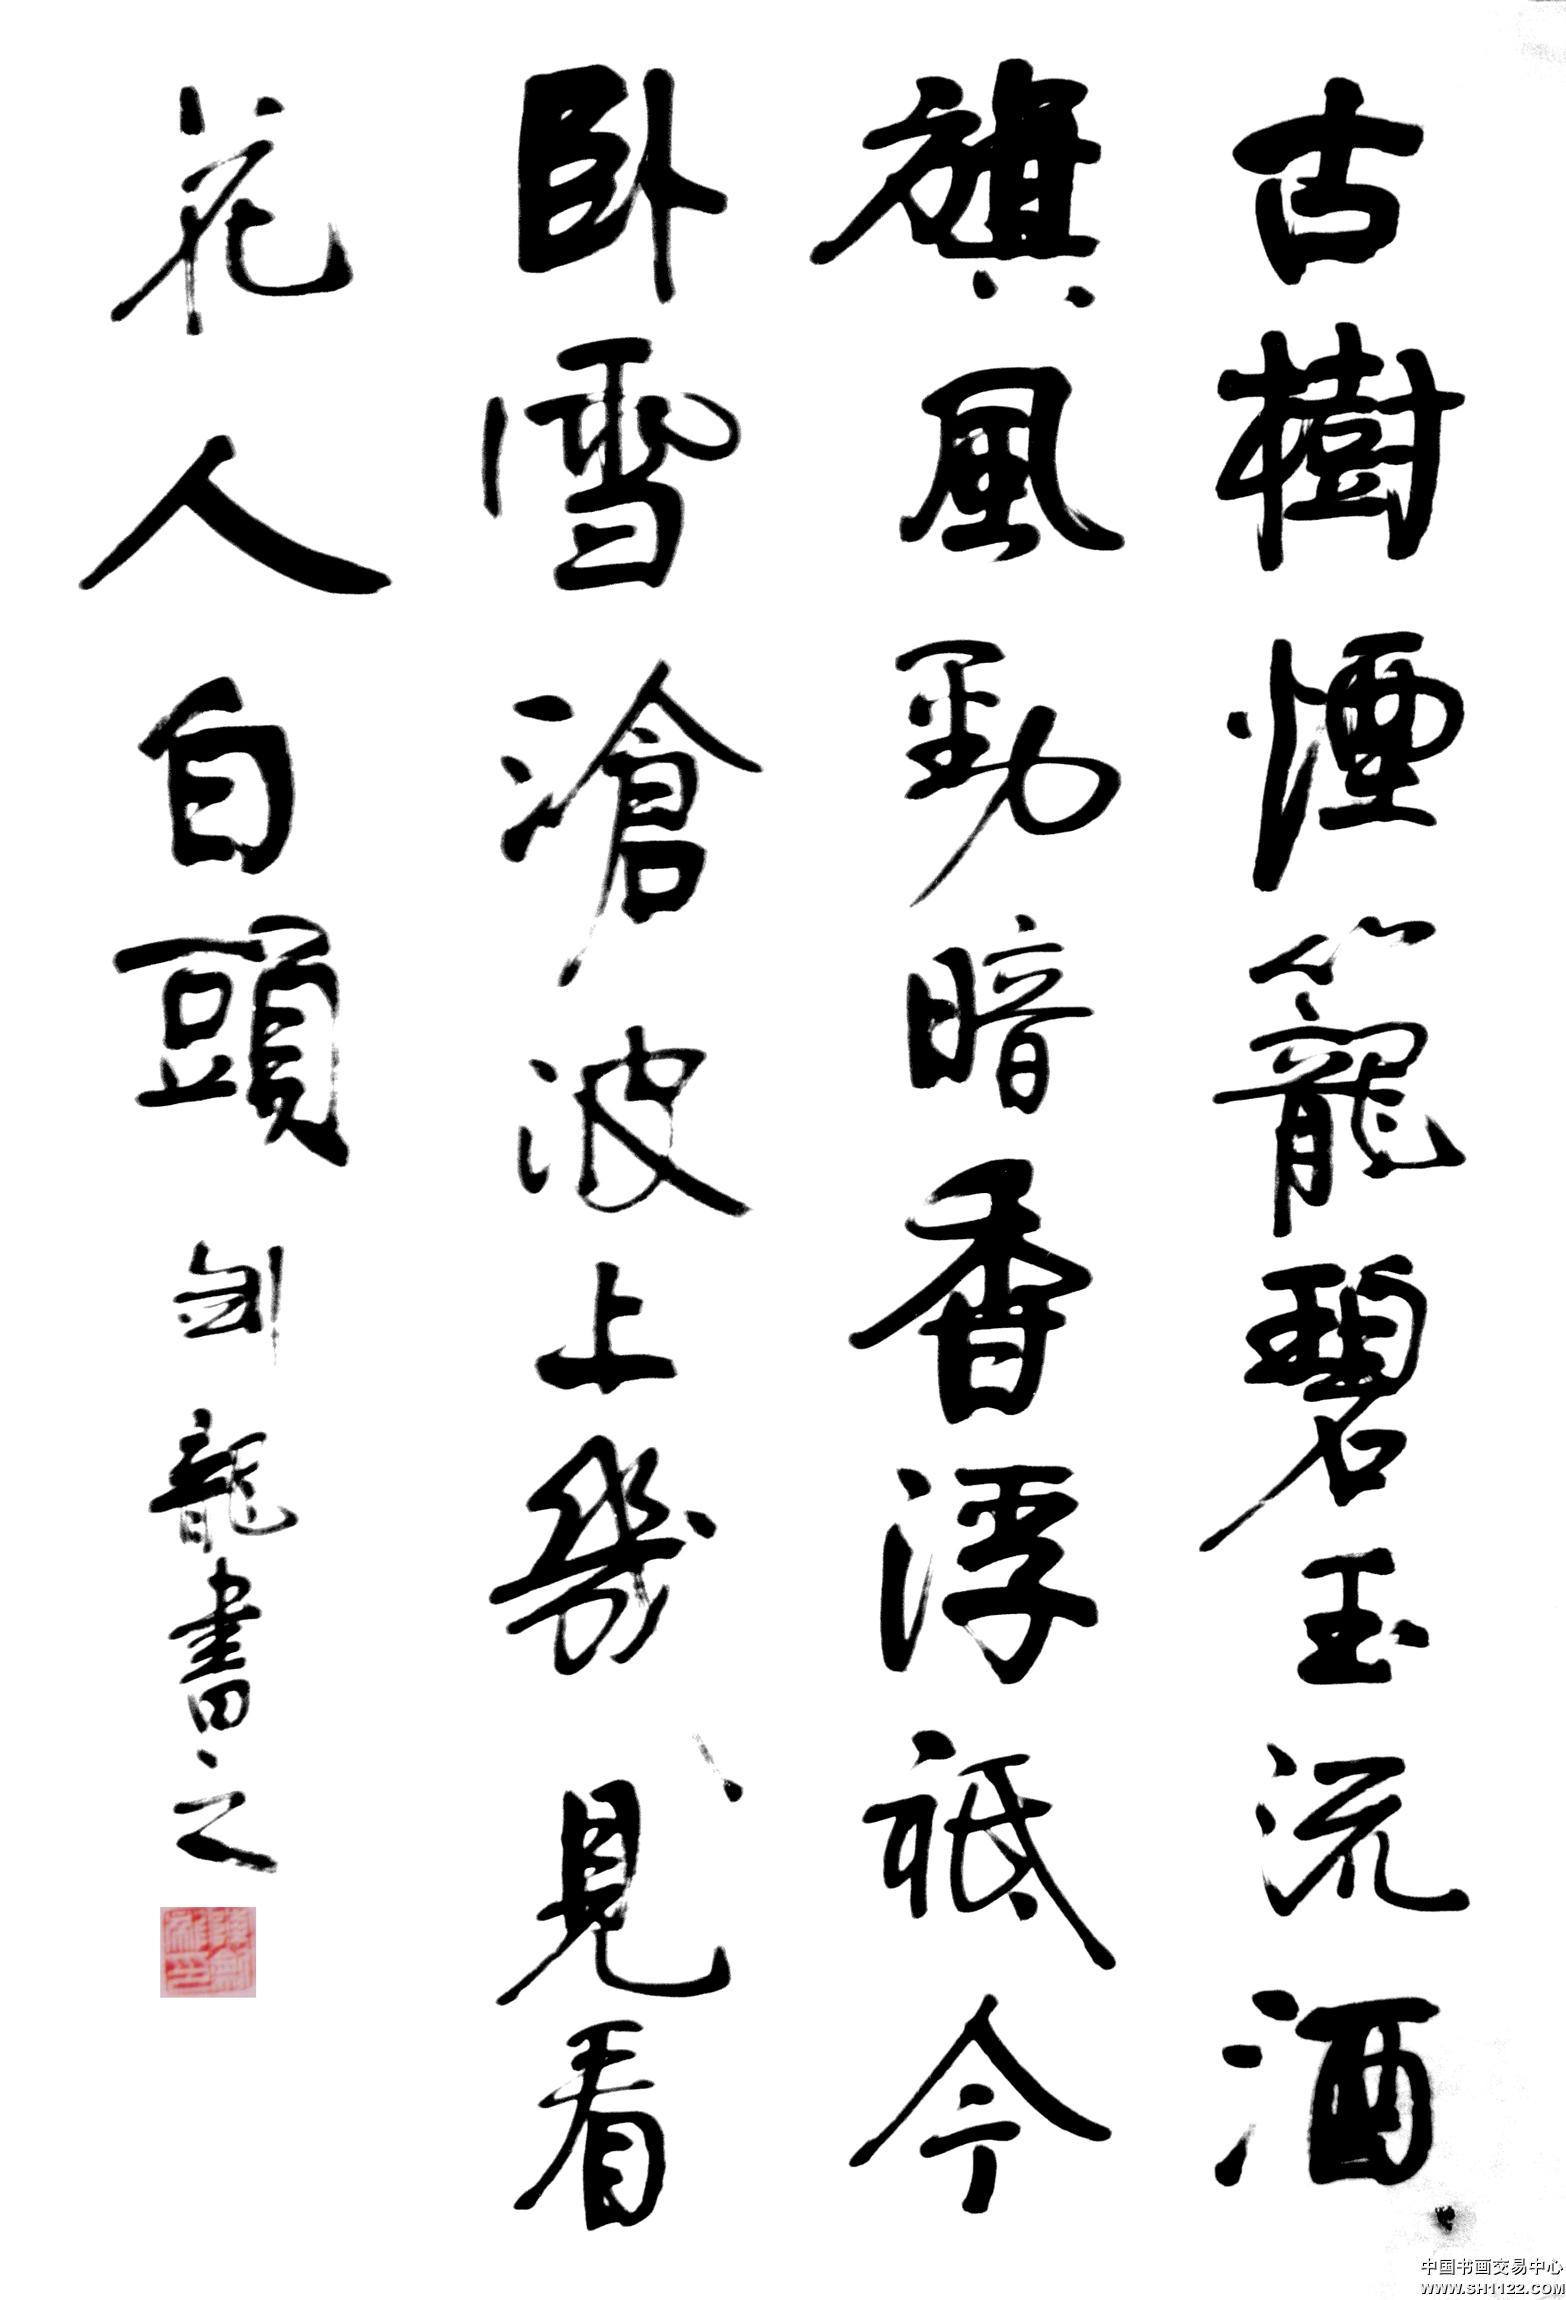 古樹煙籠碧玉流酒
旗風勁暗香浮祗今
臥雪滄波上幾見看
花人白頭
劍龍書之
中国书画交易中心
WWW.SH1122.COM